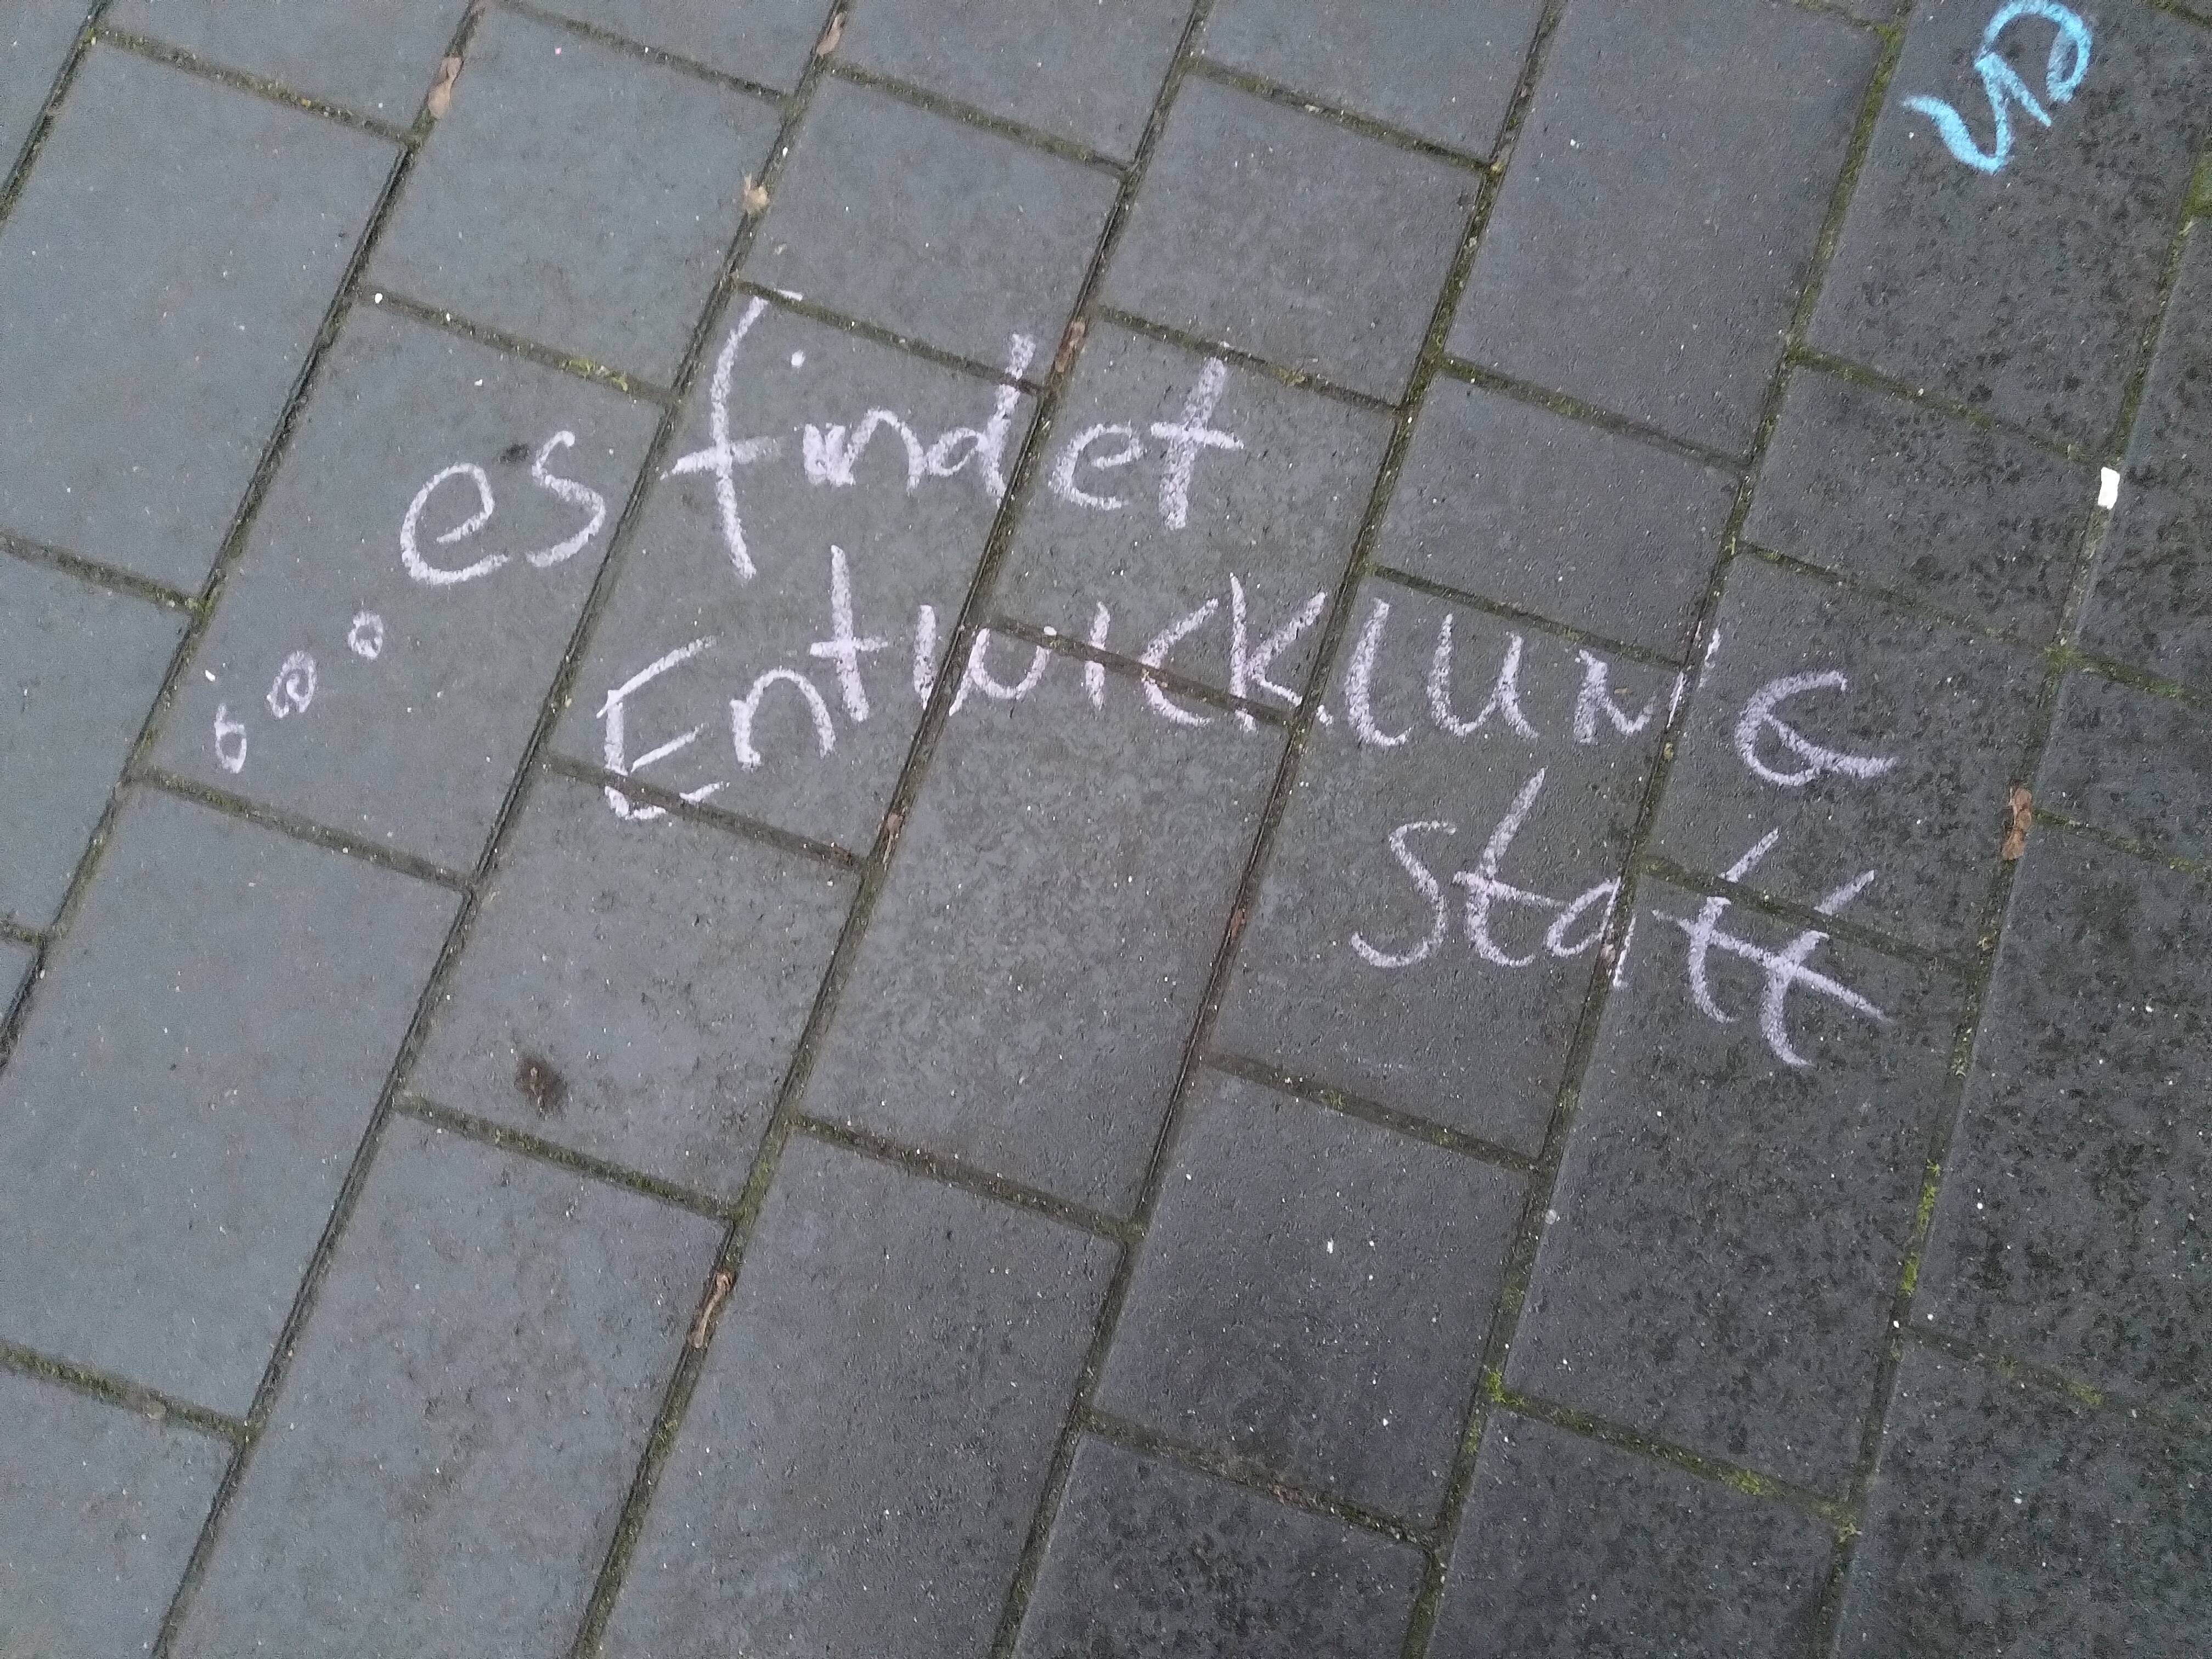 ... es findet
EntwicklUNG
statt